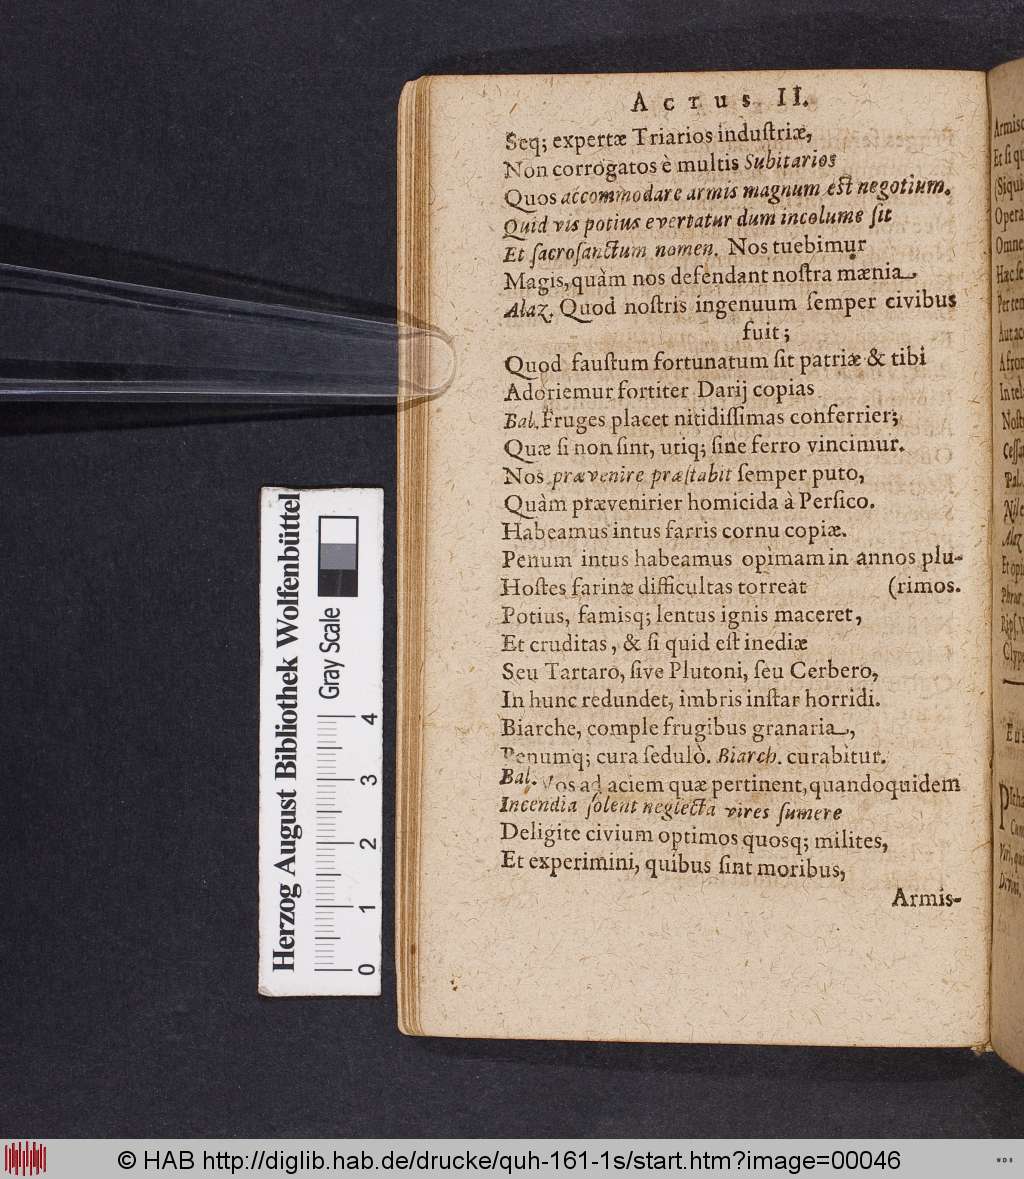 Actus II.
Seq; expertæ Triarios induſtriæ,
Non corrogatos è multis Subitarios
Quos accommodare armis magnum eſt negotium.
Quid vis potius evertatur dum incolume ſit
Et ſacroſanctum nomen. Nos tuebimur
Magis, quàm nos defendant noſtra mænia.
Alaz. Quod noſtris ingenuum ſemper civibus
fuit;
Quod fauſtum fortunatum ſit patriæ & tibi
Adoriemur fortiter Darij copias
Bal. Fruges placet nitidiſſimas conferrier;
Quæ ſi non ſint, utiq; ſine ferro vincimur.
Nos prævenire præſtabit ſemper puto,
Quàm prævenirier homicida à Perſico.
Habeamus intus farris cornu copiæ.
Penum intus habeamus opimam in annos plu-
Hoſtes farinæ difficultas torreat (rimos.
Potius, famisq; lentus ignis maceret,
Et cruditas, & ſi quid eſt inediæ
Seu Tartaro, ſive Plutoni, ſeu Cerbero,
In hunc redundet, imbris inſtar horridi.
Biarche, comple frugibus granaria,
Penumq; cura ſedulò. Biarch. curabitur.
Bal. Vos ad aciem quæ pertinent, quandoquidem
Incendia ſolent neglecta vires ſumere
Deligite civium optimos quosq; milites,
Et experimini, quibus ſint moribus,
Armis-
Herzog August Bibliothek Wolfenbüttel
Gray Scale
0 1 2 3 4
© HAB http://diglib.hab.de/drucke/quh-161-1s/start.htm?image=00046